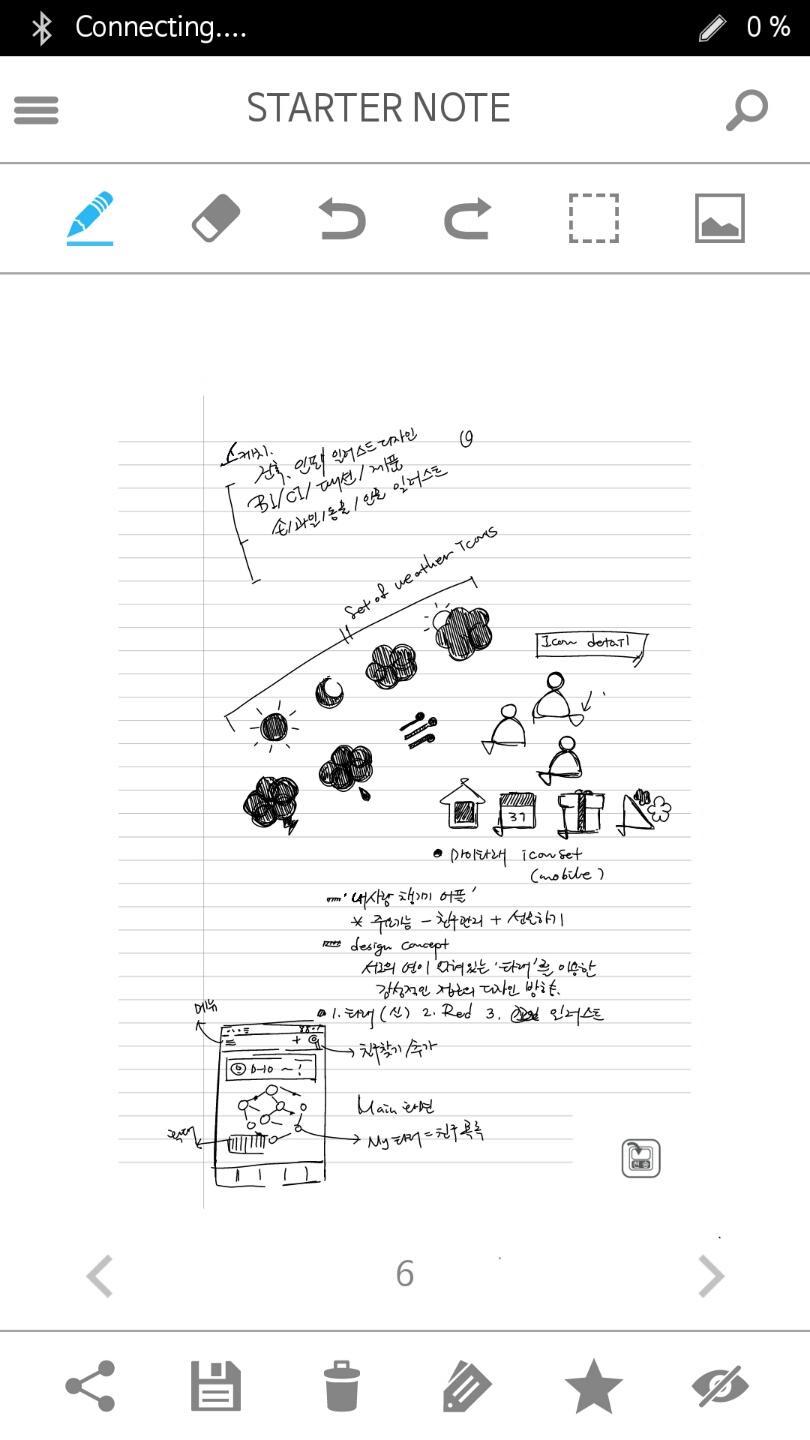 Connecting....
0 %
STARTER NOTE
스케치.
건축, 인물 일러스트 디자인
BI/CI/패션/제품
손/과일/동물/인물 일러스트
Set of weather Icons
Icon detail
31
마이타래 icon set
(mobile)
'내사랑 챙기미 어플'
* 주요기능 - 친구관리 + 선물하기
design concept
서로의 연이 닿아있는 '타래'를 이용한
감성적인 접근의 디자인 방향.
1. 타래 (신) 2. Red 3. 일러스트
메뉴
+
친구찾기/추가
D-10 ~!
Main 화면
My타래=친구목록
6